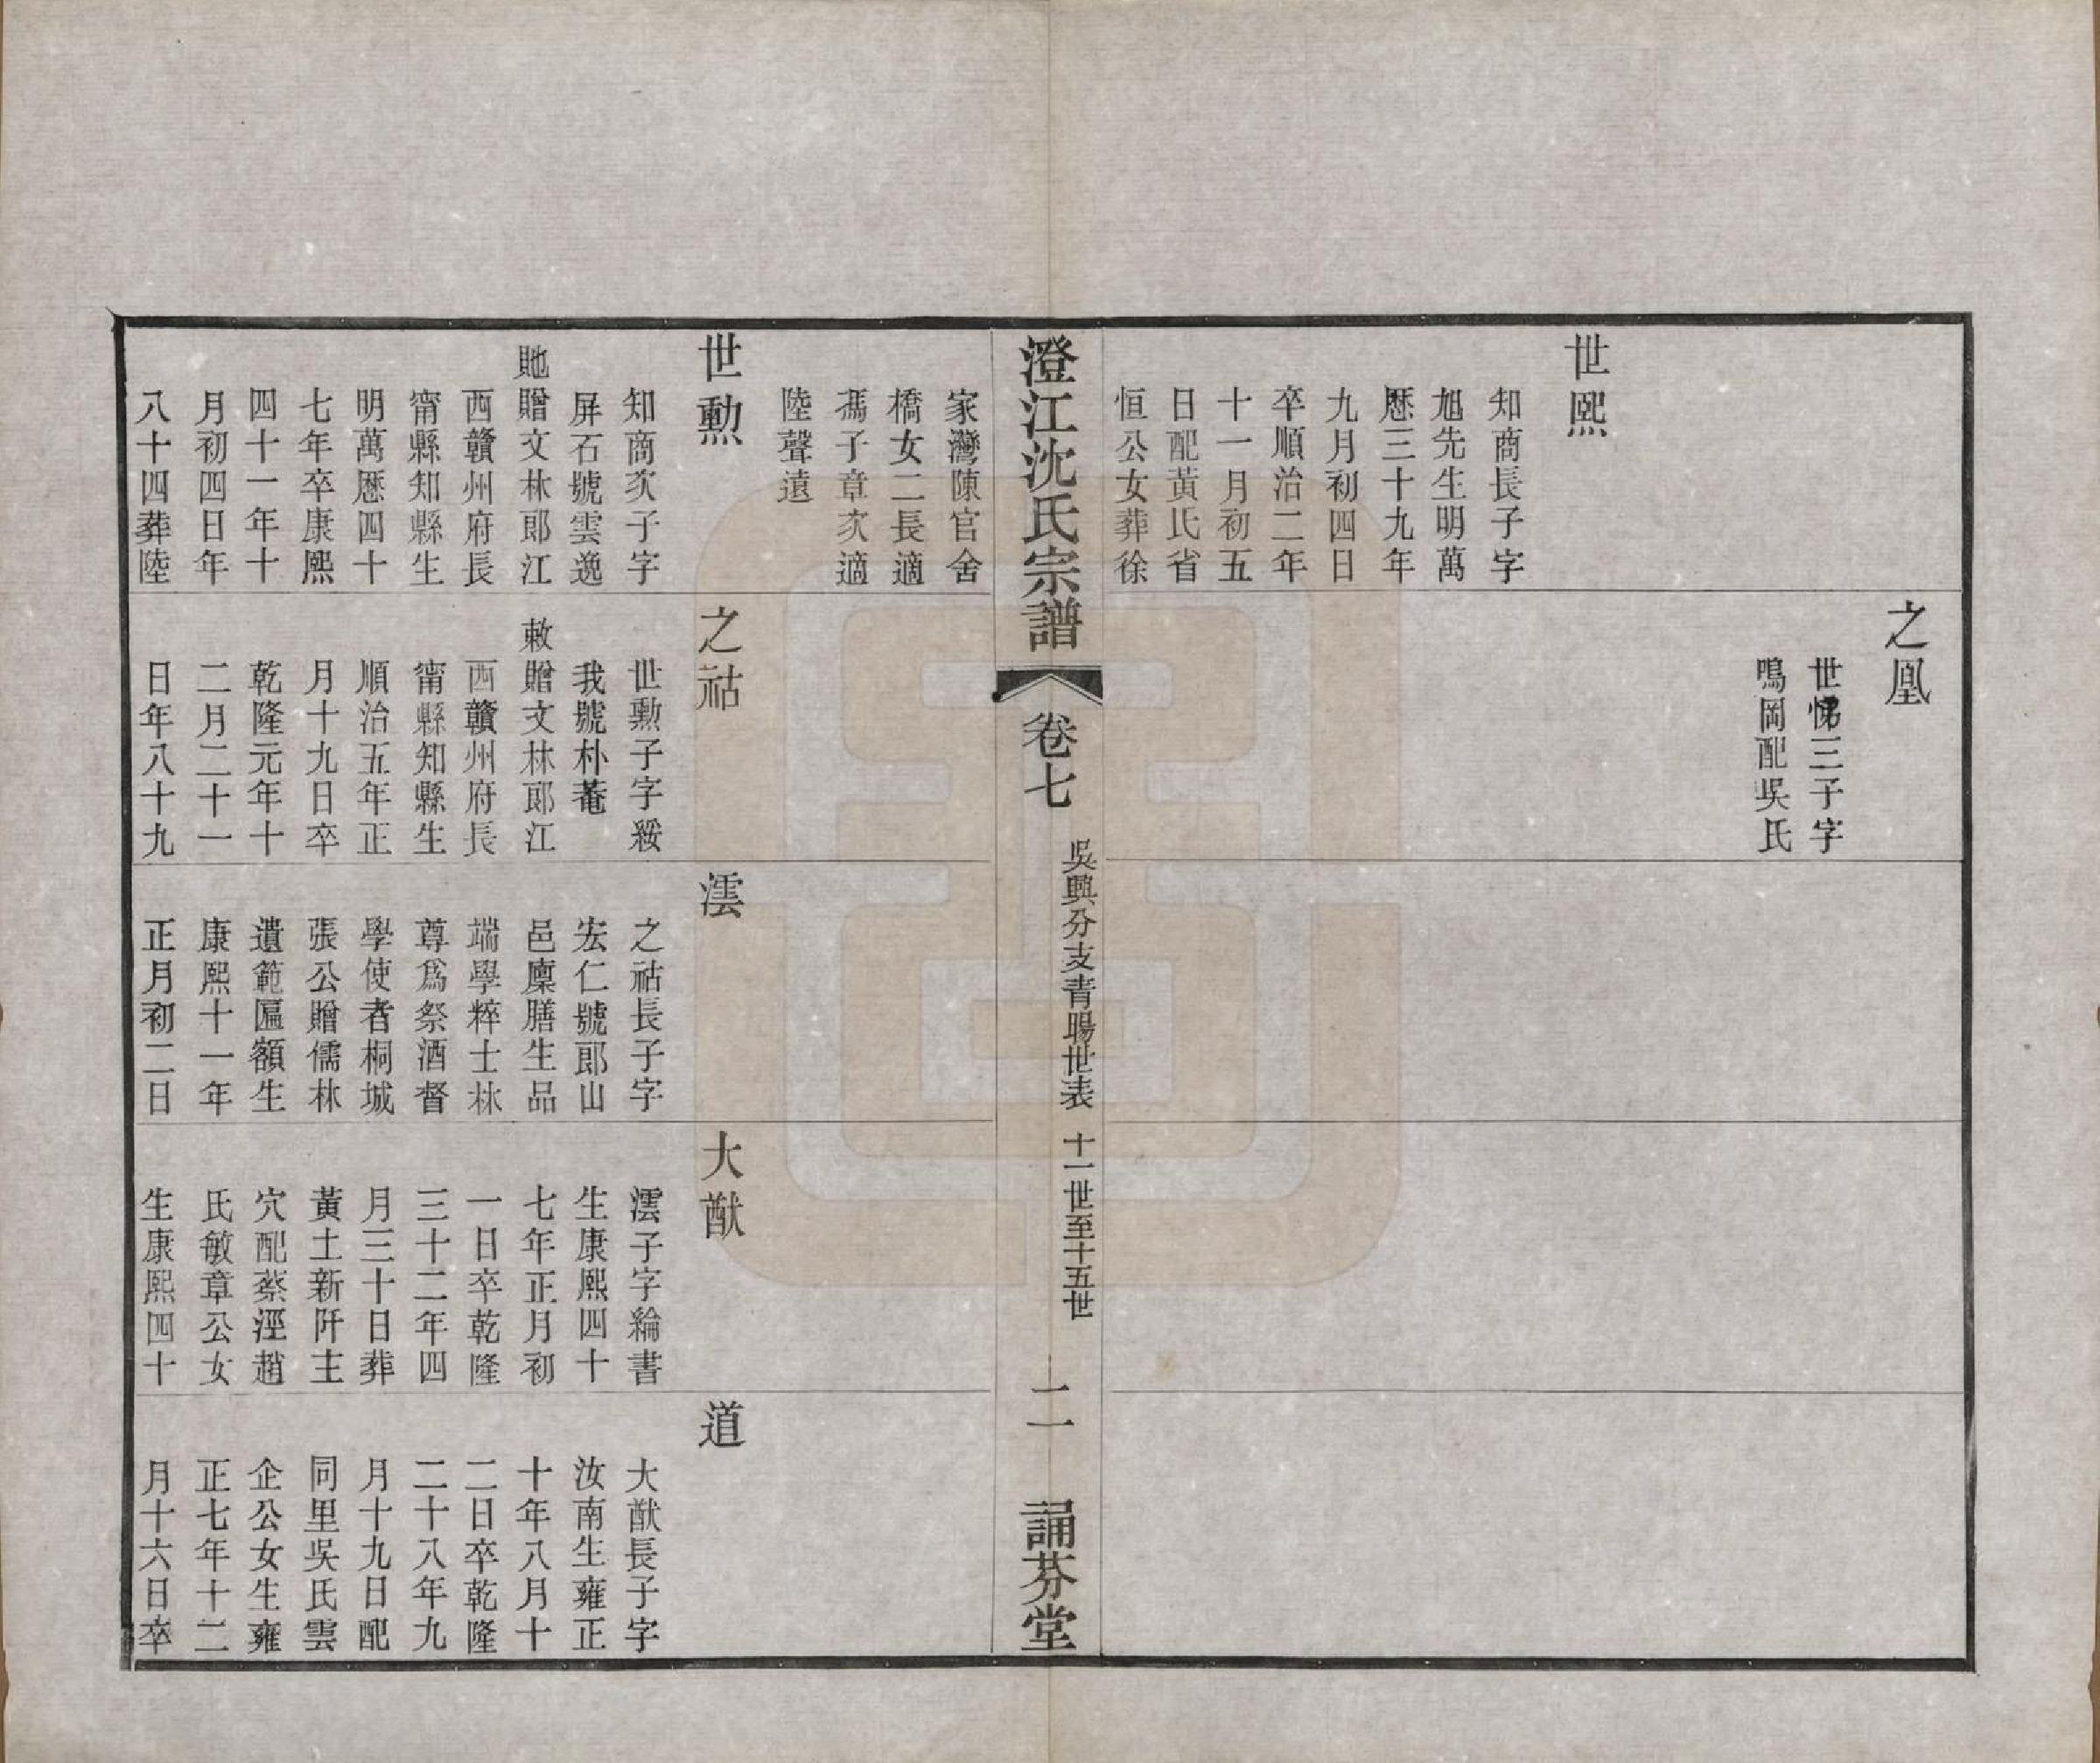 之凰
世悌三子字
鳴岡配吳氏
世熙
知商長子字
旭先生明萬
歷三十九年
九月初四日
卒順治二年
十一月初五
日配黃氏省
恒公女葬徐
澄江沈氏宗譜
卷七
吳興分支青暘世表
十一世至十五世
二
誦芬堂
家灣陳官舍
橋女二長適
馮子章次適
陸聲遠
世勳
知商次子字
屏石號雲逸
貤贈文林郎江
西贛州府長
甯縣知縣生
明萬歷四十
七年卒康熙
四十一年十
月初四日年
八十四葬陸
之祜
世勳子字綏
我號朴菴
敕贈文林郎江
西贛州府長
甯縣知縣生
順治五年正
月十九日卒
乾隆元年十
二月二十一
日年八十九
澐
之祜長子字
宏仁號郎山
邑廩膳生品
端學粹士林
尊爲祭酒督
學使者桐城
張公贈儒林
遺範匾額生
康熙十一年
正月初二日
大猷
澐子字綸書
生康熙四十
七年正月初
一日卒乾隆
三十二年四
月三十日葬
黃土新阡主
穴配蔡涇趙
氏敏章公女
生康熙四十
道
大猷長子字
汝南生雍正
十年八月十
二日卒乾隆
二十八年九
月十九日配
同里吳氏雲
企公女生雍
正七年十二
月十六日卒